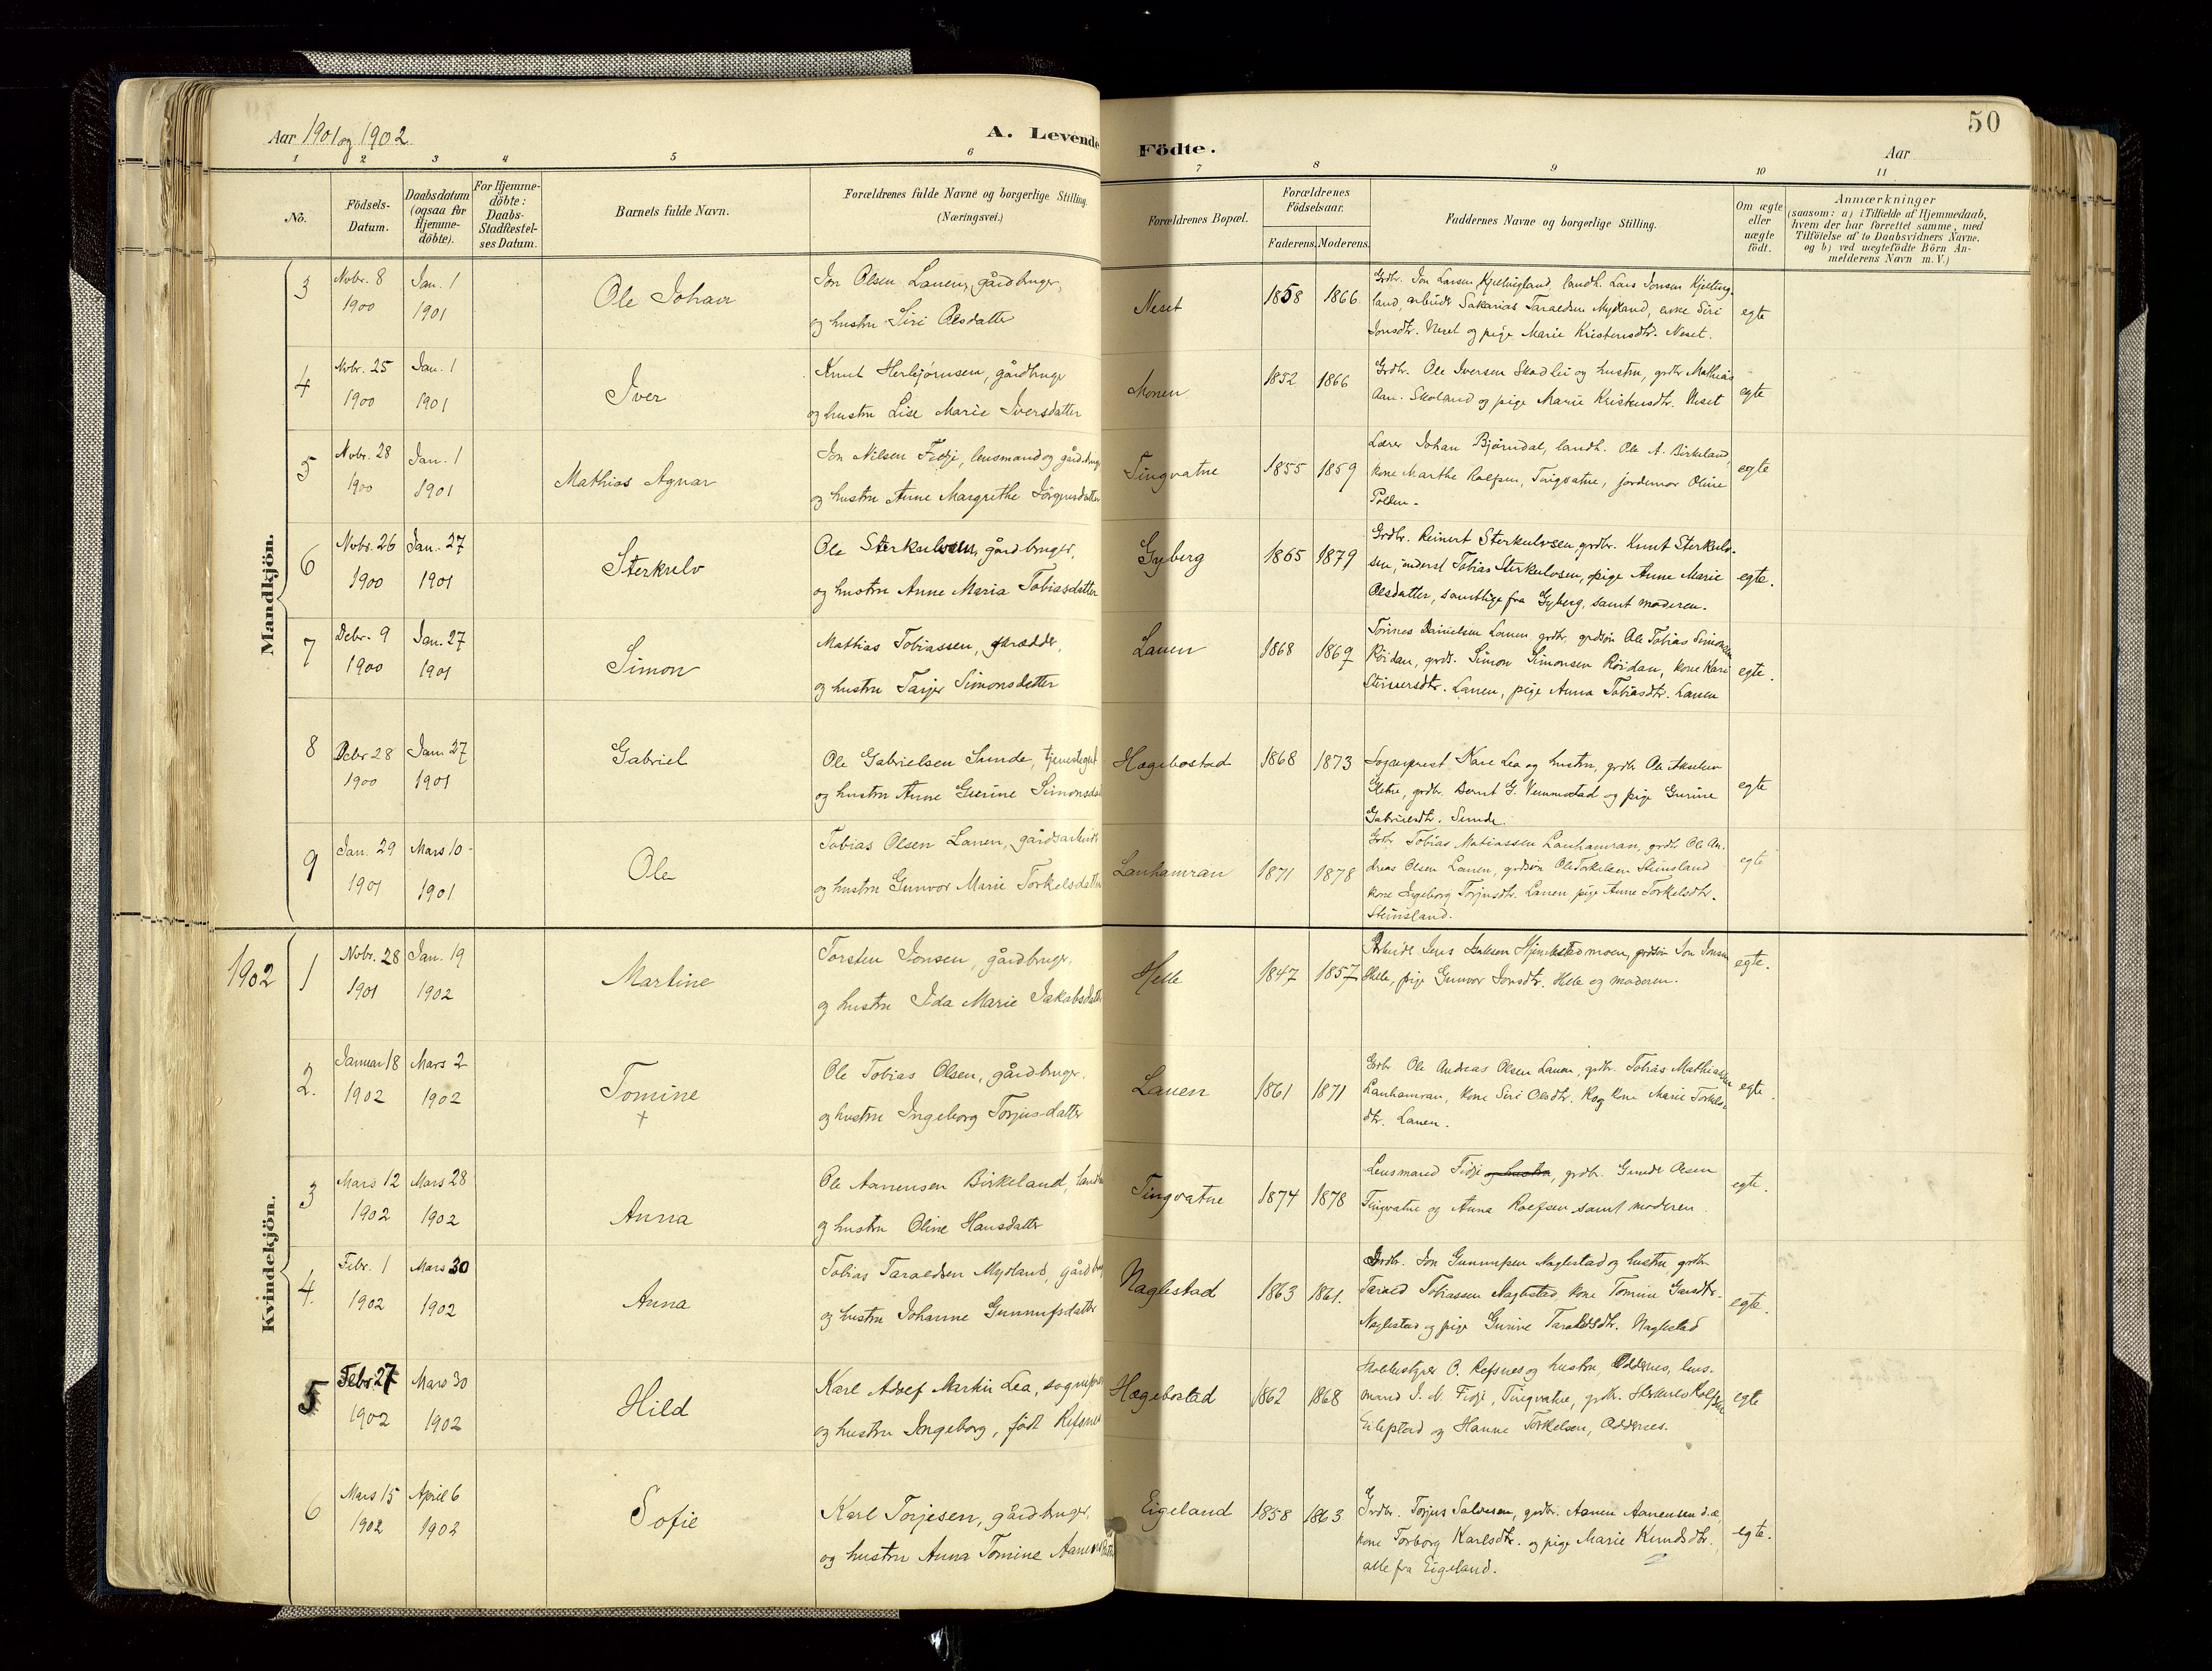 50
Aar 1901 og 1902.
A. Levende Födte.
Aar
1 2 3 4 5 6 7 8 9 10 11
No.
Födsels-
Datum.
Daabsdatum
(ogsaa for
Hjemme-
döbte).
For Hjemme-
döbte:
Daabs-
Stadfæstel-
ses Datum.
Barnets fulde Navn.
Forældrenes fulde Navne og borgerlige Stilling.
(Næringsvei.)
Forældrenes Bopæl.
Forældrenes
Födselsaar.
Faderens. Moderens.
Faddernes Navne og borgerlige Stilling.
Om ægte
eller
uægte
födt.
Anmærkninger
(saasom: a) i Tilfælde af Hjemmedaab,
hvem der har forrettet samme, med
Tilföielse af to Daabsvidners Navne.
og b) ved uægtefödte Börn An-
melderens Navn m. V.)
Mandkjön.
3
Novbr. 8
1900
Jan. 1
1901
Ole Johan
Jon Olsen Lauen, gårdbruger,
og hustru Siri Olsdatter
Neset
1858 1866
Grdbr. Jon Larsen Kjellingland, landh. Lars Jonsen Kjelling-
land, arbeider Sakarias Taraldsen Mydland, enke Siri
Jonsdtr. Neset og pige Marie Kristensdtr. Neset.
egte
4
Nvbr. 25
1900
Jan. 1
1901
Iver
Knut Herbjørnsen, gårdbruger
og hustru Lise Marie Iversdatter
Monen
1852 1866
Grdbr. Ole Iversen Skadlei og hustru, grdbr Mathias
Aan. Skoland og pige Marie Kristensdtr. Neset
egte
5
Novbr. 28
1900
Jan. 1
1901
Mathias Agnar
Jon Nilsen Fidje, lensmand og gårdbrug
og hustru Anne Margrethe Jörgensdatter
Tingvatne
1855 1859
Lærer Johan Bjørndal, landh. Ole A. Birkeland,
kone Marthe Rolfsen, Tingvatne, jordemor Oline
Polden.
egte
6
Novbr. 26
1900
Jan. 27
1901
Sterkulv
Ole Sterkulvsen, gårdbruger,
og hustru Anne Maria Tobiasdatter
Gyberg
1865 1879
Grdbr. Reinert Sterkulvsen, grdbr. Knut Sterkulv-
sen, inderst Tobias Sterkulvsen, pige Anne Marie
Olsdatter, samtlige fra Gyberg, samt moderen.
egte.
7
Debr. 9
1900
Jan. 27
1901
Simon
Mathias Tobiassen,
og hustru Tarjer Simonsdatter
Lauen
1868 1869
Tönnes Danielsen Lauen, grdbr. grdsøn Ole Tobias Simonsen
Röidan, grds. Simon Simonsen Röidan, kone Kari
Steinersdtr. Lauen, pige Anna Tobiasdtr. Lauen
egte.
8
Debr 28
1900
Jan 27
1901
Gabriel
Ole Gabrielsen Sunde,
og hustru Anne Gurine Simonsdat
Hægebostad
1868 1873
Sogneprest Karl Lea og hustru, grdbr Ole Akselsen
grdbr. Bernt G. Vemmestad og pige Gurine
Gabrielsdtr. Sunde.
egte
9
Jan. 29
1901
Mars 10
1901
Ole
Tobias Olsen Lauen, gårdsarbeider
og hustru Gunvor Marie Torkelsdatter
Lauhamran
1871 1878
Grdbr Tobias Matiassen Lauhamran, grdbr. Ole An-
dreas Olsen Lauen, grdsøn Ole Torkelsen Steinsland
kone Ingeborg Torjusdtr. Lauen, pige Anne Torkelsdtr.
Steinsland.
egte
1902
Kvindekjön.
1
Novbr. 28
1901
Jan. 19
1902
Martine
Torsten Jonsen, gårdbruger,
og hustru Ida Marie Jakobsdatter
Helle
1847 1857
Arbeider Jens grdsøn Jon Jonsen
Helle, pige Gunvor Jonsdtr. Helle og moderen.
egte.
2.
Januar 18
1902
Mars 2
1902
Tomine
+
Ole Tobias Olsen, gårdbruger.
og hustru Ingeborg Torjusdatter
Lauen
1861 1871
Grdbr Ole Andreas Olsen Lauen, grdbr. Tobias Mathiassen
Lauhamran, kone Siri Olsdtr. Rog kone Marie Torkels-
dtr. Lauen.
egte.
3
Mars 12
1902
Mars 28
1902
Anna
Ole Aanensen Birkeland,
og hustru Oline Hansdatter
Tingvatne
1874 1878
Lensmand Fidje og hustru, grdbr. Gunde Olsen
Tingvatne og Anna Rolfsen samt moderen
egte.
4.
Febr. 1
1902
Mars 30
1902
Anna
Tobias Taraldsen Mydland, gårdbru
og hustru Johanne Gunnufsdatter
Naglestad
1863 1861.
Grdbr. Jon Gunnufsen Naglestad og hustru grdbr
Tarald Tobiassen Naglestad, kone Tomine
Naglestad og pige Gurine Taraldsdtr. Naglestad
egte.
5
Febr 27
1902
Mars 30
1902
Hild
Karl Adolf Martin Lea, sogneprest
og hustru Ingeborg, født Refsnes
Hægebostad
1862 1868
Skolebestyrer O. Refsnes og hustru, Oddernes, lens-
mand J. N. Fidje, Tingvatne, grdbr. Sterkulv Rolfsen
Eilefstad og Hanne Torkelsen, Oddernes.
egte
6
Mars 15
1902
April 6
1902
Sofie
Karl Torjesen, gårdbruger,
og hustru Anna Tomine Aanensdatter
Eigeland
1858 1863
Grdbr. Torjus Salvesen, grdbr. Aanen Aanensen d.æ,
kone Torborg Karlsdtr. og pige Marie Knudsdtr.
alle fra Eigeland.
egte.